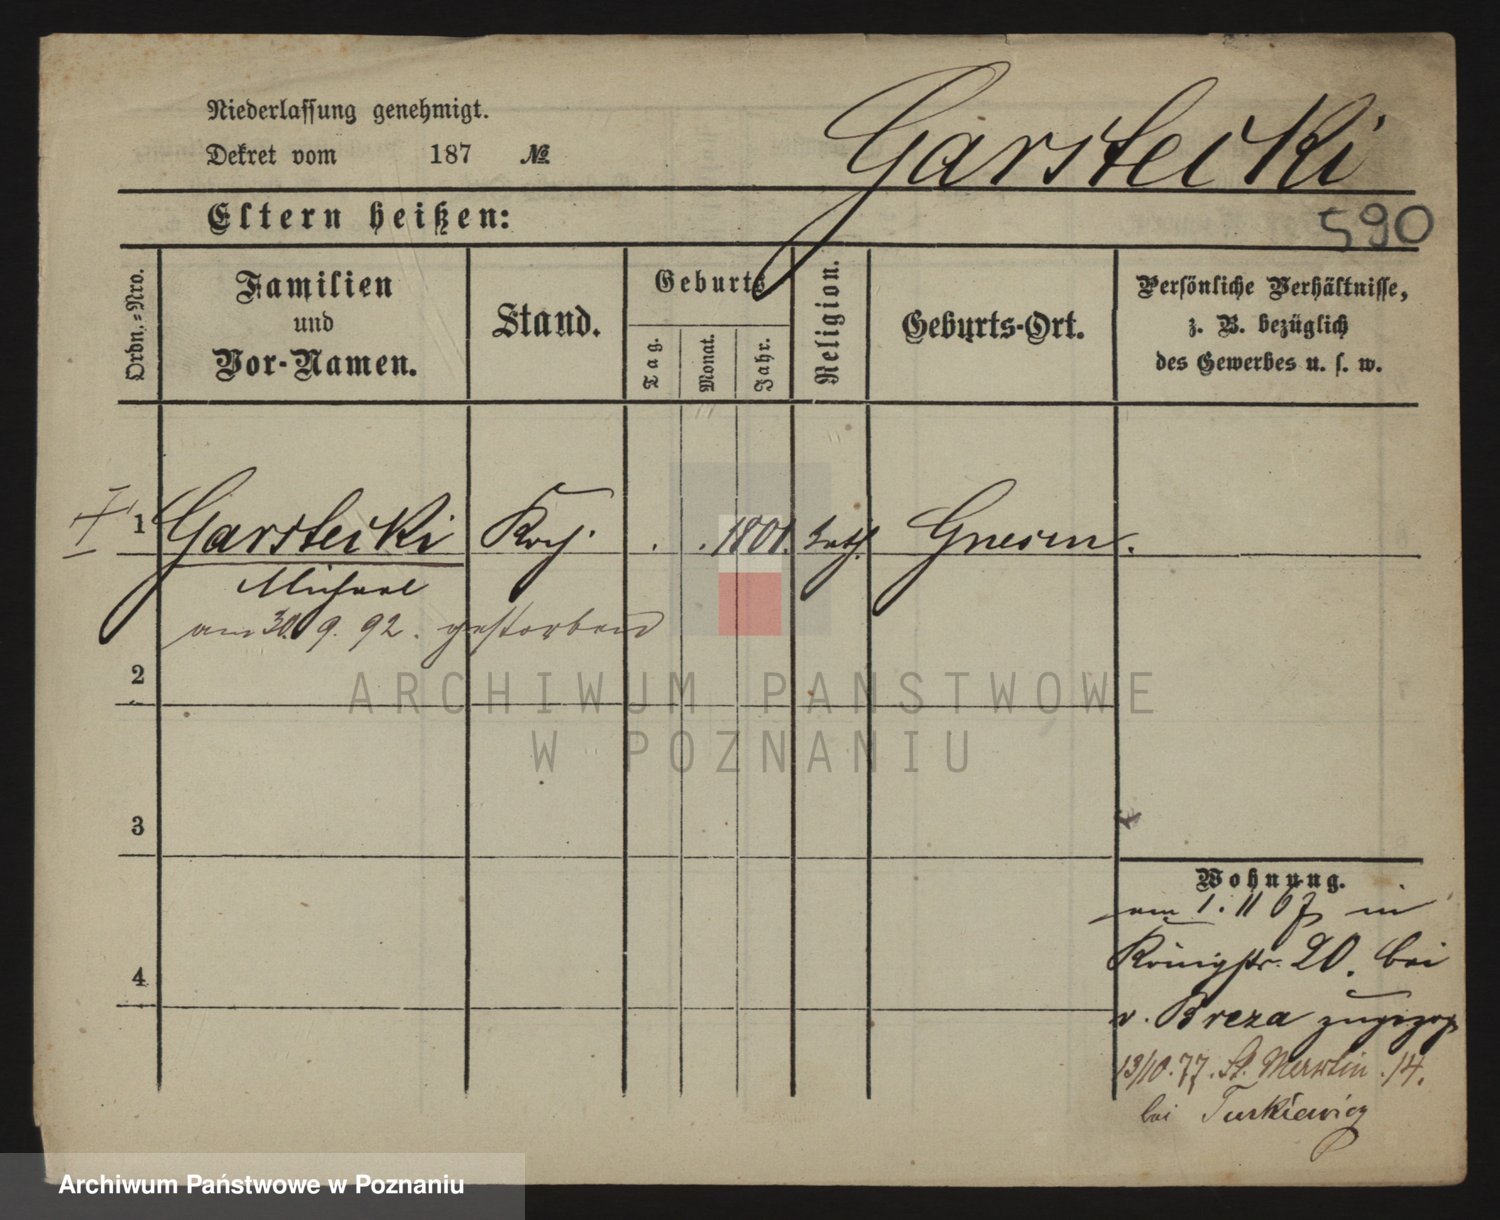 Niederlassung genehmigt.
Dekret vom 187 №
Garstecki
Eltern heißen:
590
Ordn.-Nro.
Familien
und
Vor-Namen.
Stand.
Geburts
Tag.
Monat.
Jahr.
Religion.
Geburts-Ort.
Persönliche Verhältnisse,
z. B. bezüglich
des Gewerbes u. s. w.
1 Garstecki Koch. . . 1801. kath. Gnesen.
Michael
am 30. 9. 92. gestorben
2
ARCHIWUM PAŃSTWOWE
W POZNANIU
3
4
Wohnung.
am 1. 11 in
Königstr. 20. bei
v. Breza zugezog
13/10. 77. St. Martin 14.
bei Turkiewicz
Archiwum Państwowe w Poznaniu